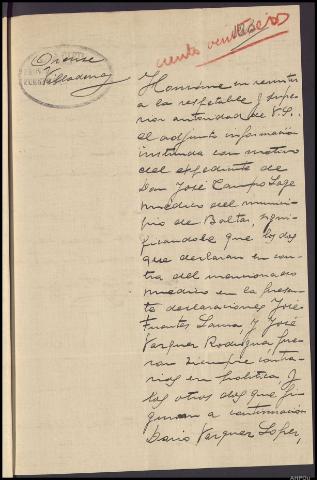 ciento veintiseis
Orense
Villaderey
Hónrome en remitir
a la respetable y supe
rior autoridad de V.S.
el adjunto información
instruida con motivo
del expediente de
Don José Campo Lage
medico del munici-
pio de Baltar, signi-
ficandole que los dos
que declaran en con-
tra del mencionado
medico en la presen
te declaraciones José
Fuentes Lama, y José
Vazquez Rodriguez fue
ron siempre contra
rios en politica y
los otros dos que fi
guran a continuación
Dario Vazquez Lopez,